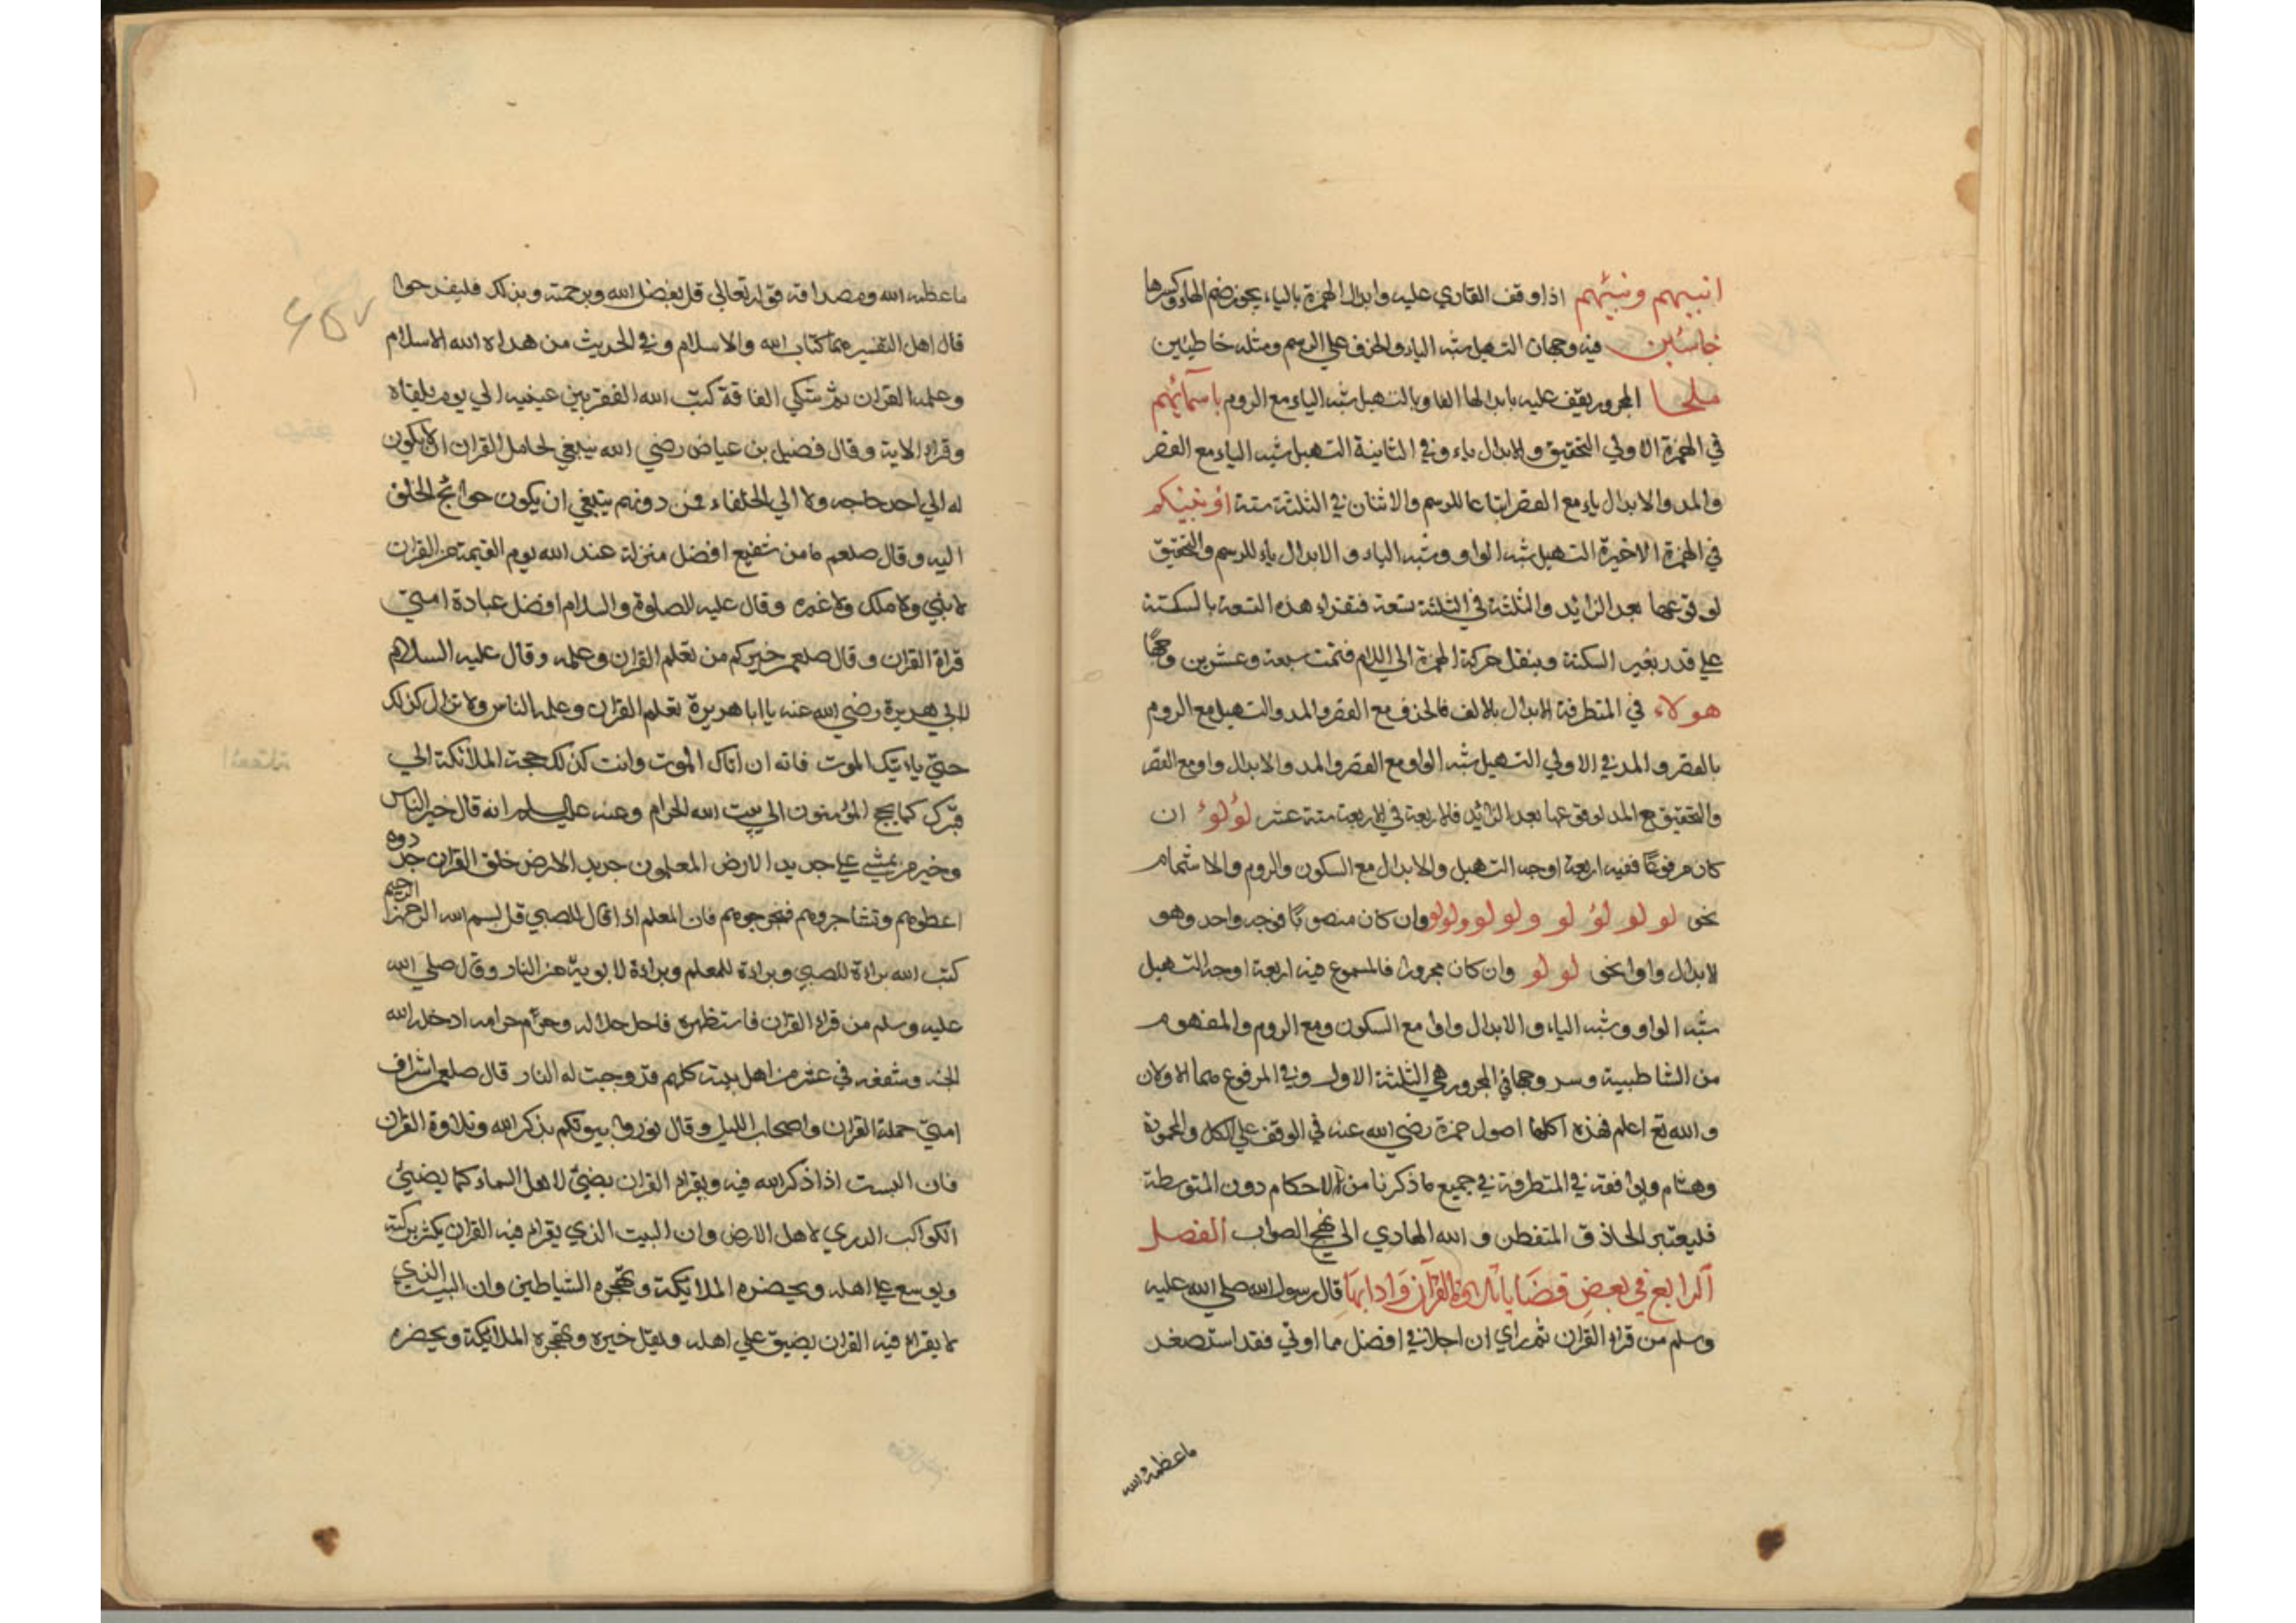 انبيهم ونبيهم اذا وقف القاري عليه وابدال الهمزة بالياء يجوز ضم الهاء وكسرها
خاسئين فيه وجهان التسهيل شبه الياء والحذف علي الرسم ومثله خاطئين
ملجا المجرور يقف عليه بابدالها الفا وبالتسهيل شبه الياء مع الروم باسمائهم
في الهمزة الاولي التحقيق والابدال ياء وفي الثانية التسهيل شبه الياء مع القصر
والمد والابدال ياء مع القصر اتباعا للرسم والاثنان في الثلثة ستة اؤنبئكم
في الهمزة الاخيرة التسهيل شبه الواو وشبه الياء والابدال ياء للرسم والتحقيق
لوقوعها بعد الزائد والثلثة في الثلثة تسعة فتقراء هذه التسعة بالسكتة
علي قدر بغير السكتة وبنقل حركة الهمزة الي اللام فتمت سبعة وعشرين وجها
هولاء في المتطرفة الابدال بالالف فالحذف مع القصر والمد والتسهيل مع الروم
بالقصر والمد في الاولي التسهيل شبه الواو مع القصر والمد والابدال واو مع القصر
والتحقيق مع المد لوقوعها بعد الزائد فالاربعة في الاربعة ستة عشر لؤلؤ ان
كان مرفوعا ففيه اربعة اوجه التسهيل والابدال مع السكون والروم والاشمام
نحو لو لو لؤ لو ولو لو ولولو وان كان منصوبا فوجه واحد وهو
لابدال واوا نحو لو لو وان كان مجرورا فالمسموع فيه اربعة اوجه التسهيل
شبه الواو وشبه الياء والابدال واوا مع السكون ومع الروم والمفهوم
من الشاطبية وسر وجهان في المجرور هي الثلثة الاول وفي المرفوع هما الاولان
والله تع اعلم فهذه اكلها اصول حمزة رضي الله عنه في الوقف علي الكل والمحموية
وهشام ويوافقه في المتطرفة في جميع ما ذكرنا من الاحكام دون المتوسطة
فليعتبر الحاذق المتفطن والله الهادي الي نهج الصواب الفصل
الرابع في بعض فضايل القرآن وادابها قال رسول الله صلي الله عليه
وسلم من قراء القران ثم راي ان احلا في افضل مما اوتي فقد استصغر
ماعظمة الله
ماعظمه الله ومصداقه قوله تعالي قل بفضل الله وبرحمته وبذلك فليفرحوا
قال اهل التفسير هما كتاب الله والاسلام وفي الحديث من هداه الله الاسلام
وعلمه القران ثم شكي الفاقة كتب الله الفقر بين عينيه الي يوم يلقاه
وقراء الاية وقال فضيل بن عياض رضي الله ينبغي لحامل القران ان لا يكون
له الي احد حاجه ولا الي الخلفاء فمن دونهم ينبغي ان يكون حوائج الخلق
اليه وقال صلعم ما من شفيع افضل منزلة عند الله يوم القيمة من القران
لا نبي ولا ملك ولا غيره وقال عليه الصلوة والسلام افضل عبادة امتي
قراة القران وقال صلعم خيركم من تعلم القران وعلمه وقال عليه السلام
لابي هريرة رضي الله عنه يا ابا هريرة تعلم القران وعلمه الناس ولا تزال كذلك
حتي ياتيك الموت فانه ان اتاك الموت وانت كذلك حجت الملائكة الي
قبرك كما يحج المؤمنون الي بيت الله الحرام وعنه عليه السلم انه قال خير الناس
وخير من يمشي علي جديد الارض المعلمون جديد الارض خلق القران جددوه
اعطوهم وتشاجروهم فتحرجوهم فان المعلم اذا قال للصبي قل بسم الله الرحمن الرحيم
كتب الله براءة للصبي وبراءة للمعلم وبراءة لابويه من النار وقال صلي الله
عليه وسلم من قراء القران فاستظهره فاحل حلاله وحرم حرامه ادخله الله
الجنة وشفعه في عشر من اهل بيته كلهم قد وجبت له النار قال صلعم اشراف
امتي حملة القران واصحاب الليل وقال نوروا بيوتكم بذكر الله وتلاوة القران
فان البيت اذا ذكر الله فيه ويقراء القران يضيئ لاهل السماء كما يضيئ
الكواكب الدري لاهل الارض وان البيت الذي يقراء فيه القران يكثر بركته
ويوسع علي اهله ويحضره الملائكة وتهجره الشياطين وان البيت الذي
لا يقراء فيه القران يضيق علي اهله ويقل خيره وتهجره الملائكة ويحضره